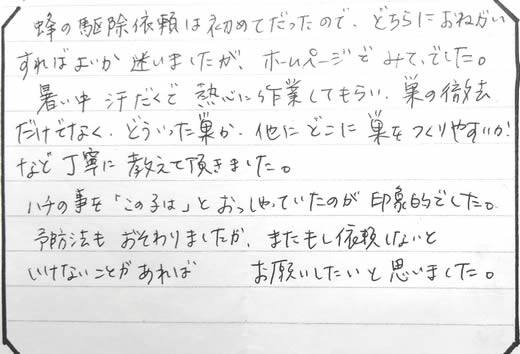 蜂の駆除依頼は初めてだったので、どちらにおねがい
すればよいか 迷いましたが、ホームページでみて、でした。
暑い中 汗だくで 熱心に作業してもらい、巣の撤去
だけでなく、どういった巣か、他にどこに巣をつくりやすいか!
など丁寧に教えて頂きました。
ハチの事を「この子は」とおっしゃっていたのが印象的でした。
予防法も おそわりましたが、またもし依頼しないと
いけないことがあれば お願いしたいと思いました。